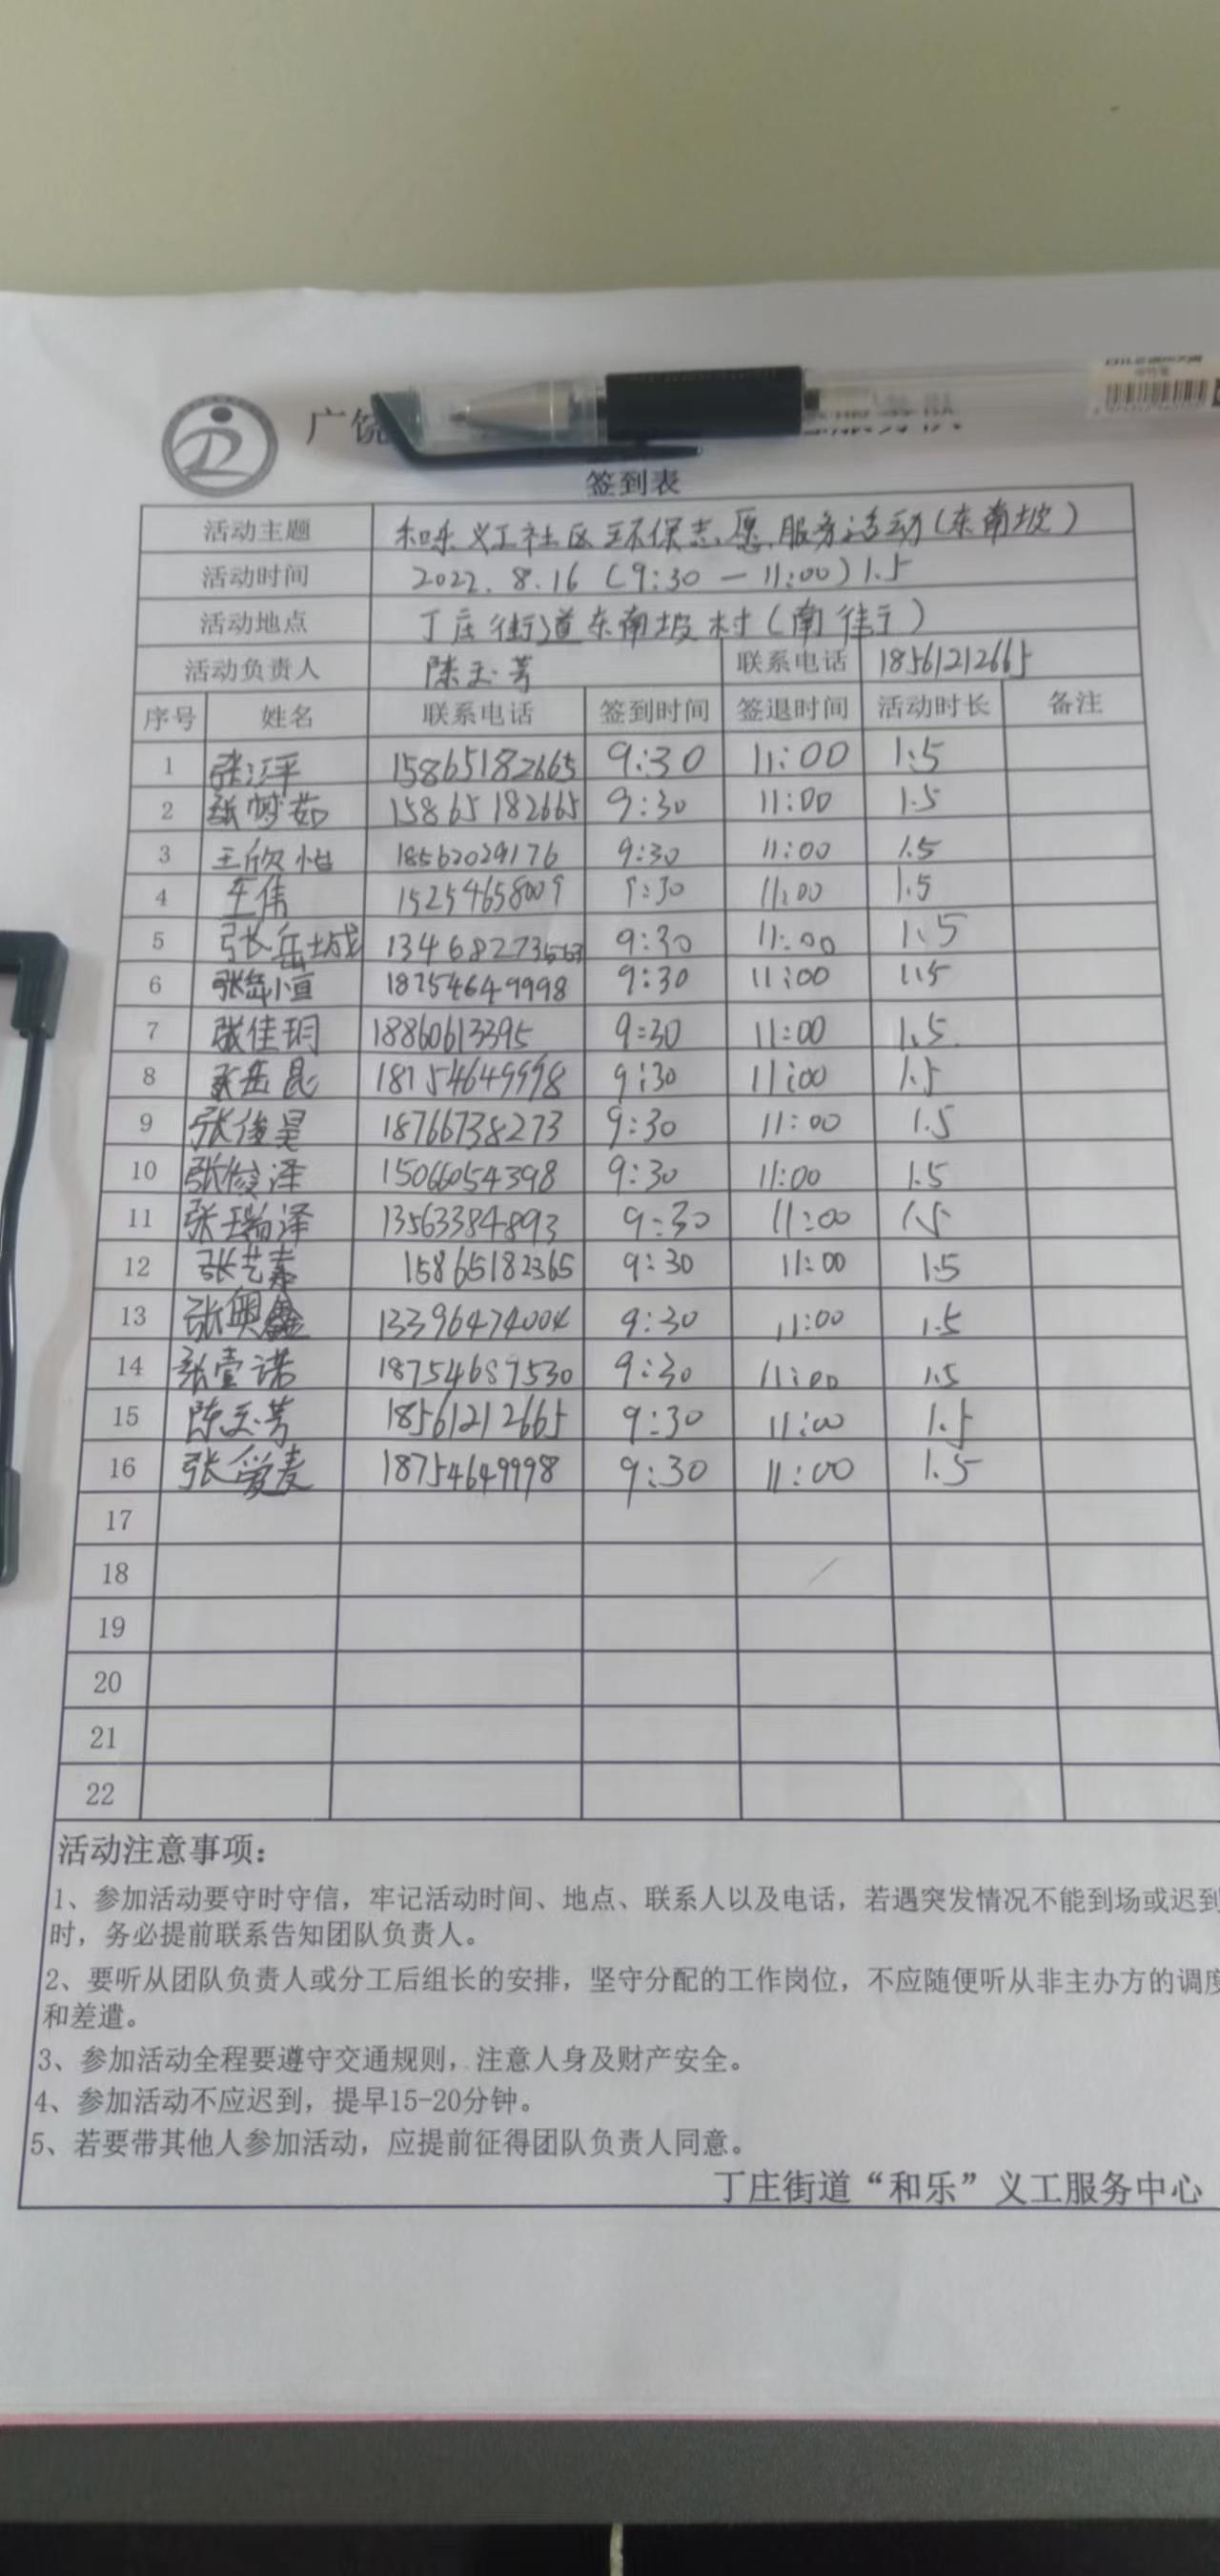 广饶
签到表
活动主题 和乐义工社区环保志愿服务活动(东南坡)
活动时间 2022.8.16(9:30—11:00)1.5
活动地点 丁庄街道东南坡村(南街)
活动负责人 陈玉芳 联系电话 18561212665
序号 姓名 联系电话 签到时间 签退时间 活动时长 备注
1 张江平 15865182665 9:30 11:00 1.5
2 张梦茹 15865182665 9:30 11:00 1.5
3 王欣怡 18562029176 9:30 11:00 1.5
4 王伟 15254658009 9:30 11:00 1.5
5 张岳城 9:30 11:00 1.5
6 张岳恒 18754649998 9:30 11:00 1.5
7 张佳玥 18860613395 9:30 11:00 1.5
8 张岳昆 18754649998 9:30 11:00 1.5
9 张俊昊 18766738273 9:30 11:00 1.5
10 张俊泽 15066054398 9:30 11:00 1.5
11 张瑞泽 13563384893 9:30 11:00 1.5
12 张艺素 15865182365 9:30 11:00 1.5
13 张奥鑫 13396474004 9:30 11:00 1.5
14 张壹诺 18754689530 9:30 11:00 1.5
15 陈玉芳 18561212665 9:30 11:00 1.5
16 张爱麦 18754649998 9:30 11:00 1.5
17
18
19
20
21
22
活动注意事项：
1、参加活动要守时守信，牢记活动时间、地点、联系人以及电话，若遇突发情况不能到场或迟到
时，务必提前联系告知团队负责人。
2、要听从团队负责人或分工后组长的安排，坚守分配的工作岗位，不应随便听从非主办方的调度
和差遣。
3、参加活动全程要遵守交通规则，注意人身及财产安全。
4、参加活动不应迟到，提早15-20分钟。
5、若要带其他人参加活动，应提前征得团队负责人同意。
丁庄街道“和乐”义工服务中心